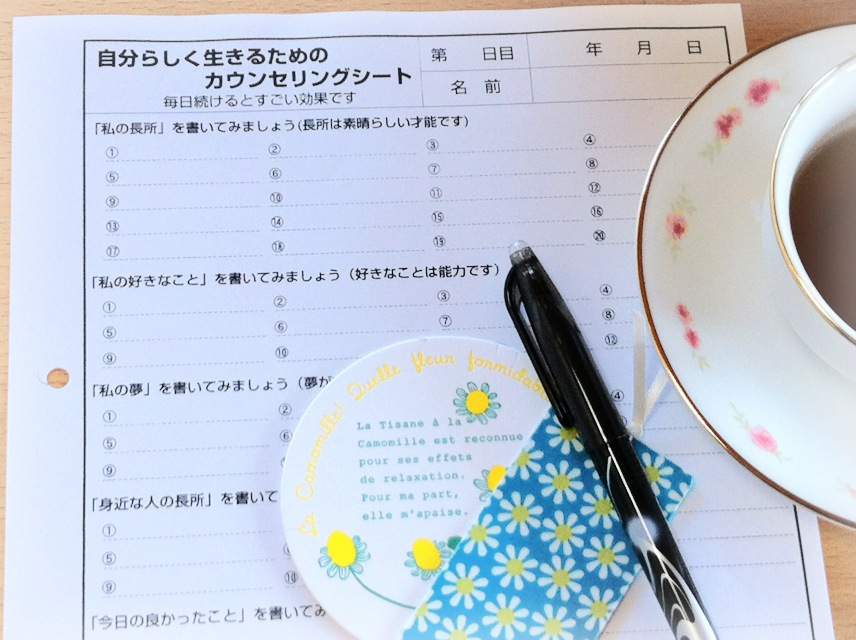 自分らしく生きるための
カウンセリングシート
毎日続けるとすごい効果です
第 日目
年 月 日
名 前
「私の長所」を書いてみましょう(長所は素晴らしい才能です)
① ② ③ ④
⑤ ⑥ ⑦ ⑧
⑨ ⑩ ⑪ ⑫
⑬ ⑭ ⑮ ⑯
⑰ ⑱ ⑲ ⑳
「私の好きなこと」を書いてみましょう(好きなことは能力です)
① ② ③ ④
⑤ ⑥ ⑦ ⑧
⑨ ⑩ ⑫
「私の夢」を書いてみましょう(夢が
① ② ④
⑤ ⑥
⑨
「身近な人の長所」を書いて
①
⑤
⑨ ⑩
「今日の良かったこと」を書いてみ
La Camomille! Quelle fleur formidable
La Tisane à la
Camomille est reconnue
pour ses effets
de relaxation.
Pour ma part,
elle m'apaise.